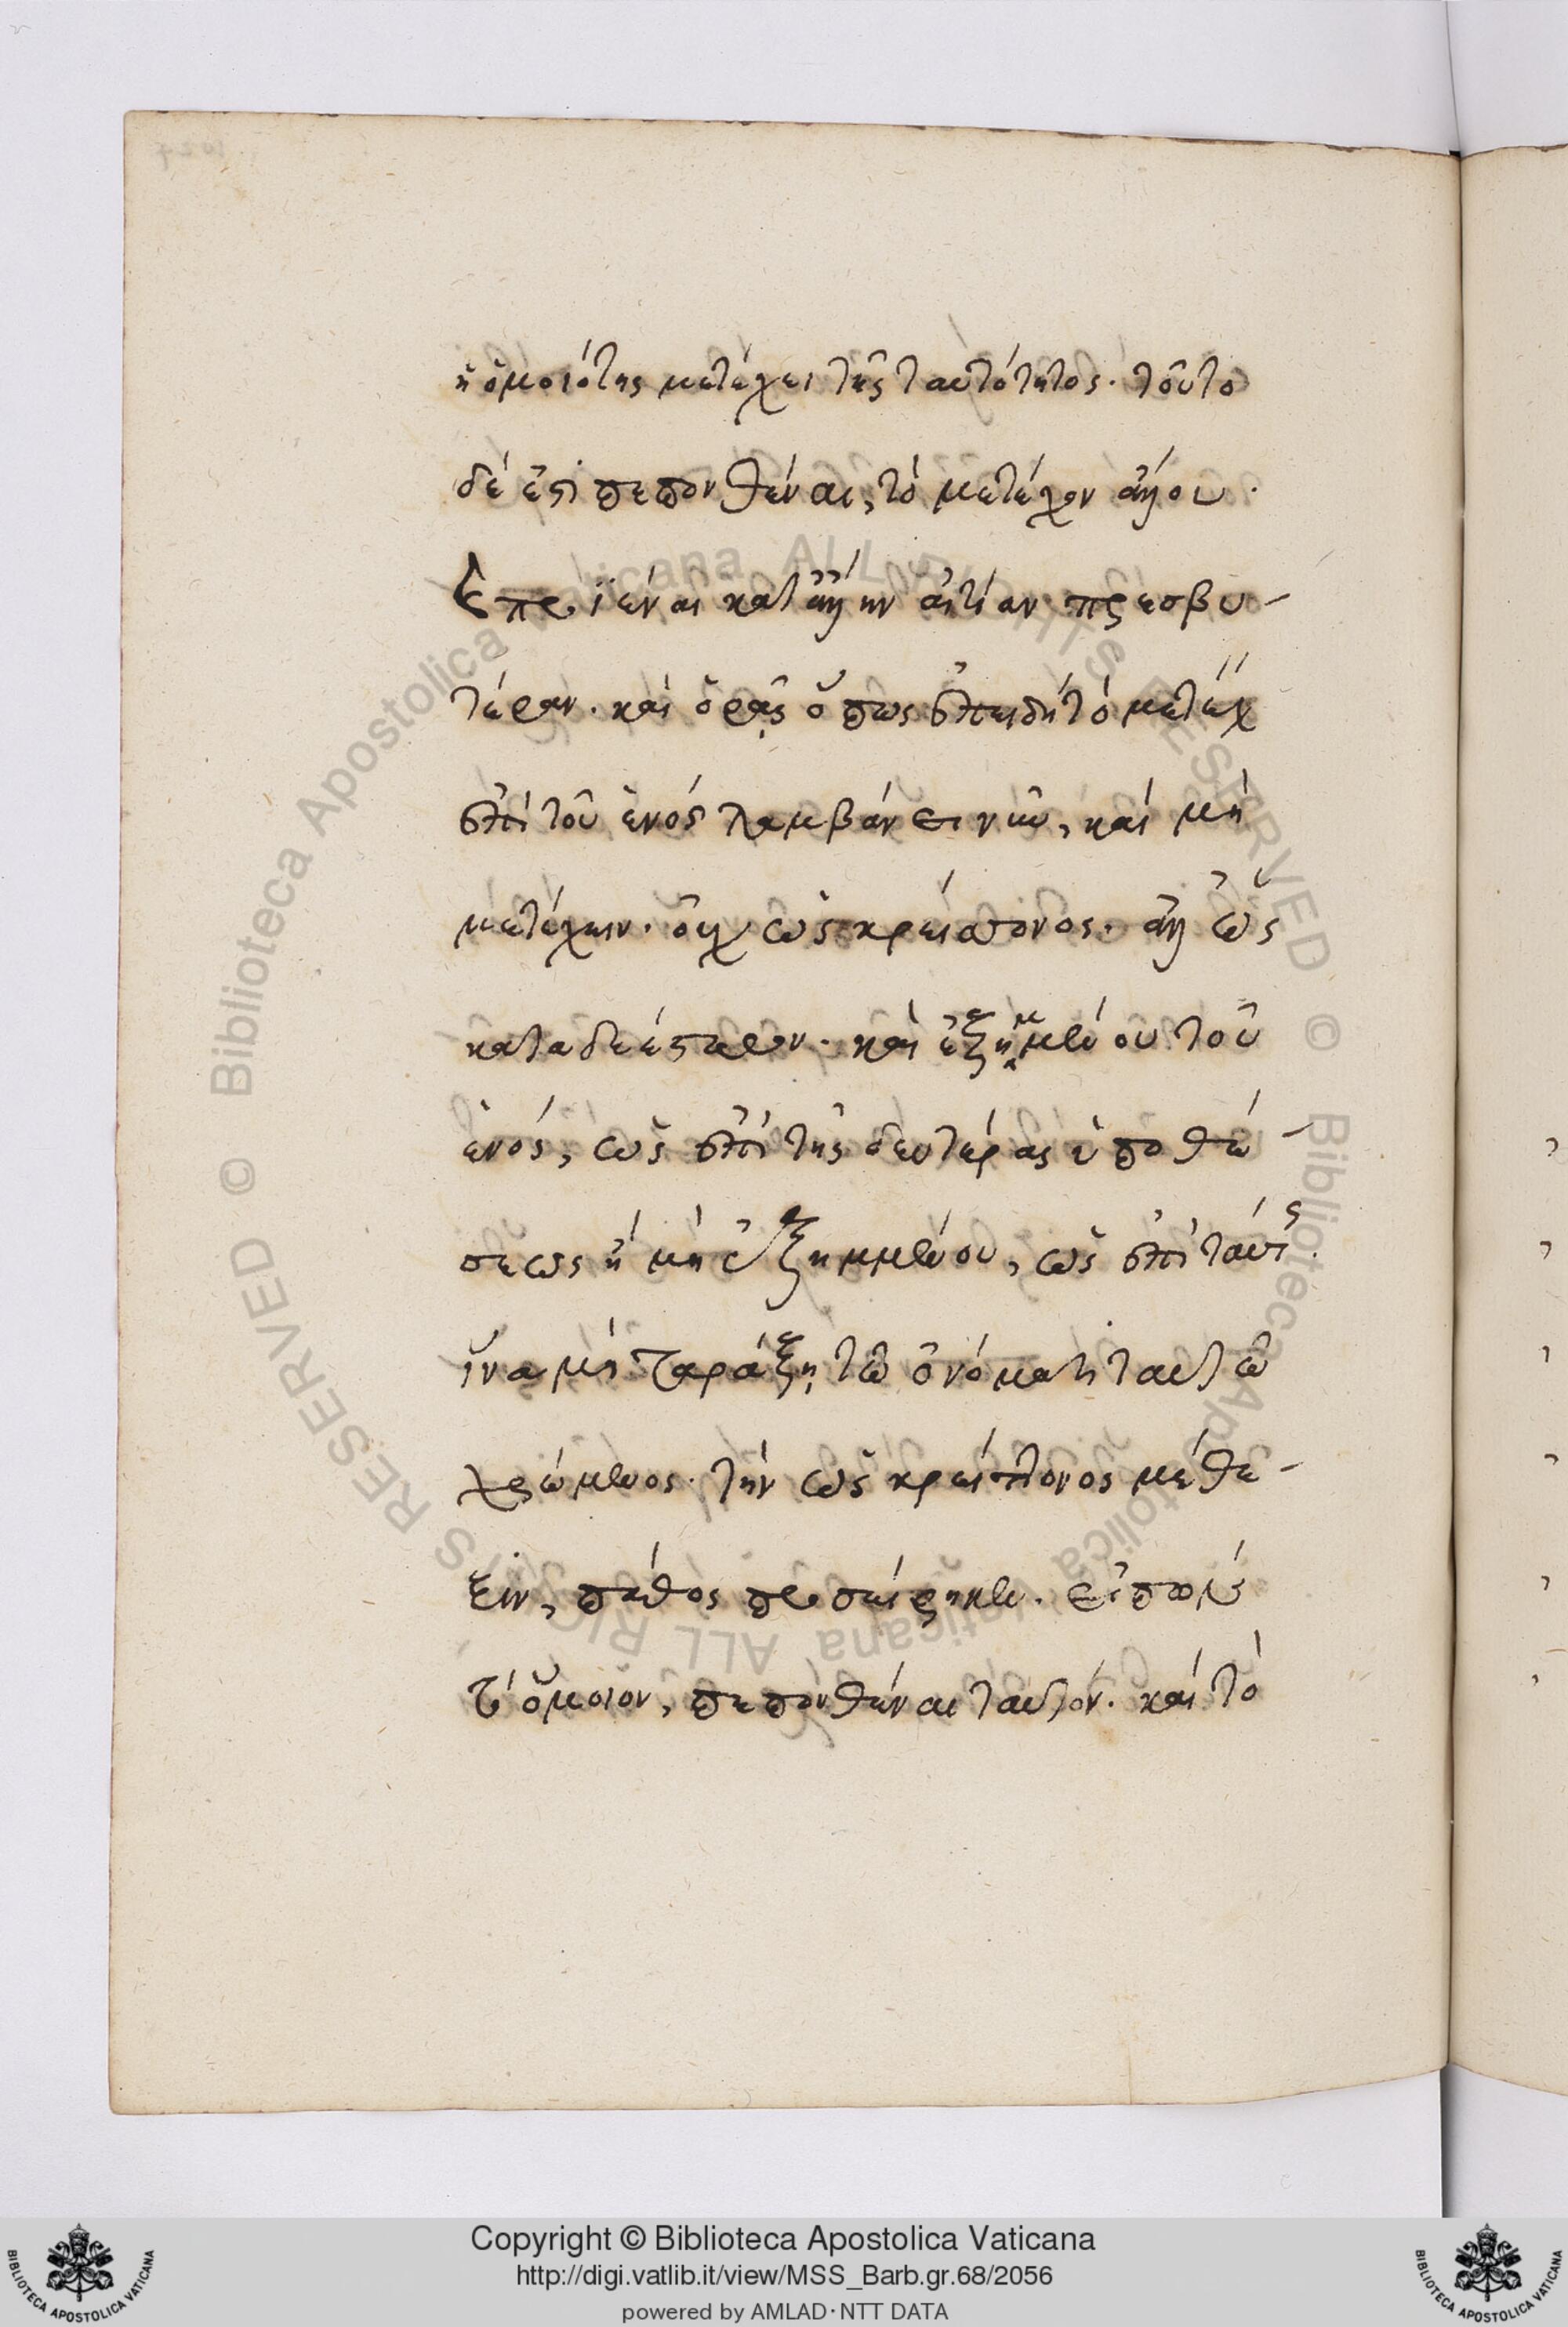 ἡ ὁμοιότης μετέχει τῆς ταυτότητος· τοῦτο
δέ ἐστι πεπονθέναι, τὸ μετέχον ἄλλου·
προϊέναι κατ' ἄλλην αἰτίαν πρεσβυ-
τέραν· καὶ ὁρᾷς ὅπως ἐπειδὴ τὸ μετέχ
ἐπὶ τοῦ ἑνὸς λαμβάνει νῦν, καὶ μὴ
μετέχειν· οὐχ ὡς κρείττονος· ἀλλ' ὡς
καταδεέστερον· καὶ ἐξῃμμένου τοῦ
ἑνός, ὡς ἐπὶ τῆς δευτέρας ὑποθέ-
σεως ἢ μὴ ἐξημμένου, ὡς ἐπὶ ταύτης·
ἵνα μὴ ταράξῃ τῷ ὀνόματι ταυτῷ
χρώμενος· τὴν ὡς κρείττονος μέθε-
ξιν, πάθος προσείρηκεν. εἴπομεν
τὸ ὅμοιον, πεπονθέναι ταυτόν· καὶ τὸ
Biblioteca Apostolica Vaticana ALL RIGHTS RESERVED ©
Biblioteca Apostolica Vaticana ALL RIGHTS RESERVED ©
Copyright © Biblioteca Apostolica Vaticana
http://digi.vatlib.it/view/MSS_Barb.gr.68/2056
powered by AMLAD·NTT DATA
BIBLIOTECA APOSTOLICA VATICANA
BIBLIOTECA APOSTOLICA VATICANA